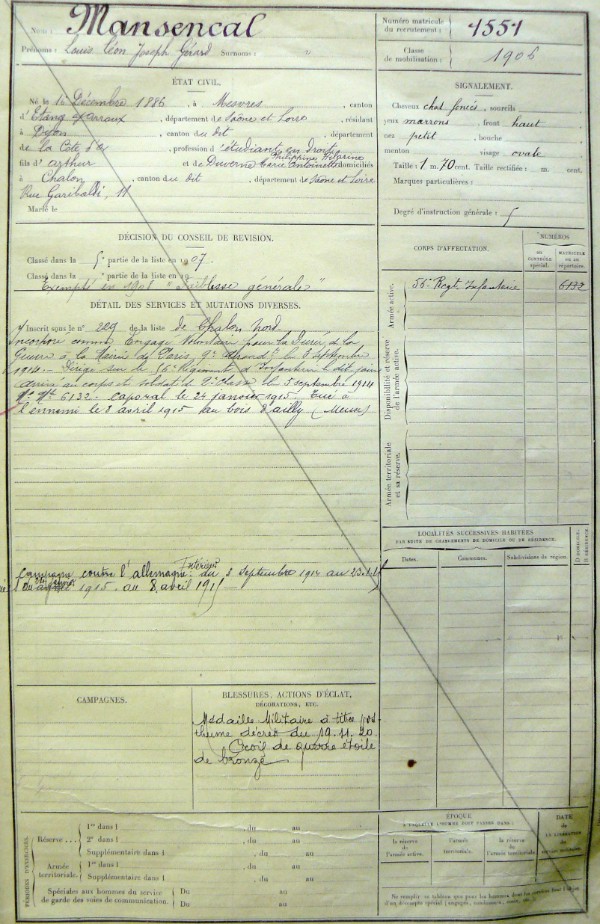 Nom : Mansencal
Prénoms : Louis Léon Joseph Gérard Surnoms :
Numéro matricule du recrutement : 1551
Classe de mobilisation : 1906
ÉTAT CIVIL.
Né le 16 Décembre 1886, à Mesvres, canton
d'Etang s/ Arroux, département de Saône et Loire, résidant
à Dijon, canton du dit, département
de la Côte d'or, profession d'étudiant en droit
fils d'arthur et de Duverne Marie Antoinette Philippine domiciliés
à Chalon, canton du dit, département de Saône et Loire
Rue Garibaldi, 11
Marié le
SIGNALEMENT.
Cheveux chat. foncés, sourcils
yeux marrons, front haut
nez petit, bouche
menton visage ovale
Taille : 1 m. 70 cent. Taille rectifiée : m. cent.
Marques particulières :
Degré d'instruction générale : 5
DÉCISION DU CONSEIL DE REVISION.
Classé dans la 5e partie de la liste en 1907.
Classé dans la partie de la liste en 19
Exempté en 1908 "Faiblesse générale"
DÉTAIL DES SERVICES ET MUTATIONS DIVERSES.
Inscrit sous le n° 229 de la liste de Chalon Nord
Incorporé comme Engagé Volontaire pour la Durée de la
Guerre à la Mairie de Paris 9e le 3 Septembre
1914. Dirigé sur le 56e Régiment d'Infanterie le dit jour
arrivé au corps et soldat de 2e classe le 5 septembre 1914
No Mle 6132. Caporal le 24 janvier 1915. Tué à
l'ennemi le 8 avril 1915 au bois d'ailly (Meuse)
Campagne contre l'allemagne : Intérieur du 3 Septembre 1914 au
1915 au 8 avril 1915
CORPS D'AFFECTATION.
NUMÉROS
AU CONTRÔLE SPÉCIAL.
MATRICULE OU AU RÉPERTOIRE.
Armée active.
56e Regt Infanterie 6132
Disponibilité et réserve de l'armée active.
Armée territoriale et sa réserve.
LOCALITÉS SUCCESSIVES HABITÉES
PAR SUITE DE CHANGEMENTS DE DOMICILE OU DE RÉSIDENCE.
Dates. Communes. Subdivisions de région.
CAMPAGNES.
BLESSURES, ACTIONS D'ÉCLAT, DÉCORATIONS, ETC.
Médaille Militaire à titre pos-
thume décret du 19.11.20.
Croix de guerre étoile
de bronze
Réserve
1re dans l , du au
2e dans l , du au
Supplémentaire dans l , du au
Armée territoriale.
1re dans l , du au
Supplémentaire dans l , du au
Spéciales aux hommes du service de garde des voies de communication.
Du au
Du au
ÉPOQUE
À LAQUELLE L'HOMME DOIT PASSER DANS :
la réserve de l'armée active.
l'armée territoriale.
la réserve de l'armée territoriale.
DATE